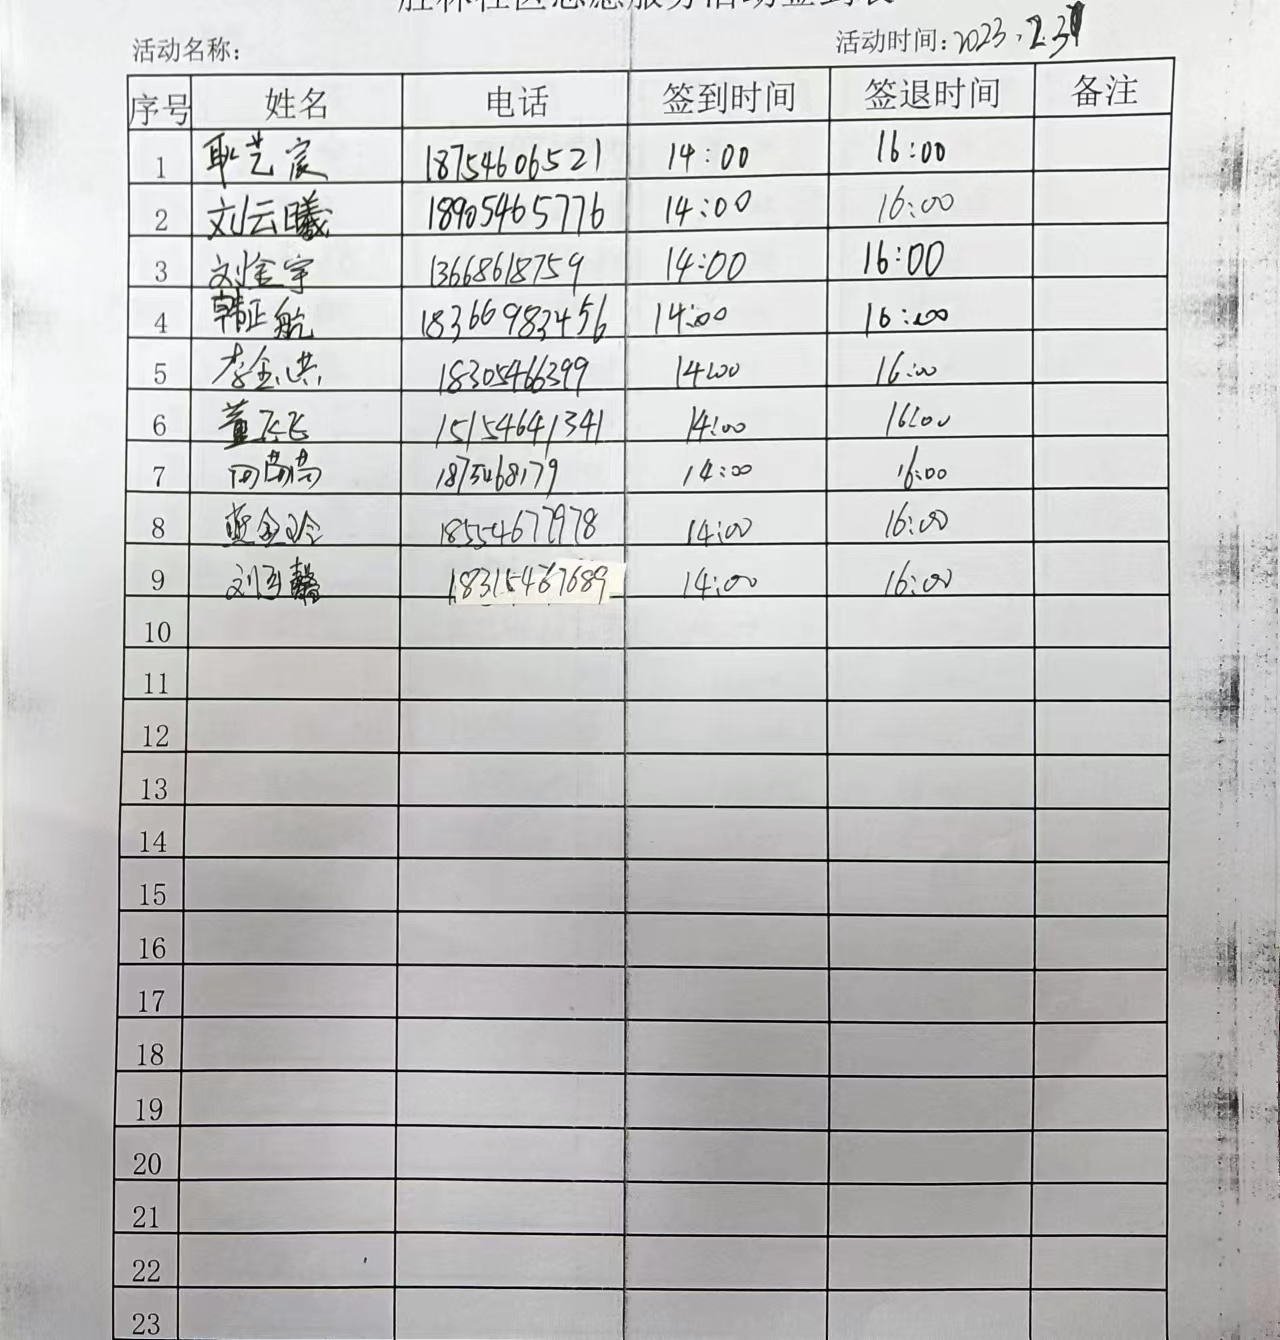 胜林社区志愿服务活动签到表
活动名称: 活动时间: 2023.2.3
序号 姓名 电话 签到时间 签退时间 备注
1 耿艺宸 18754606521 14:00 16:00
2 刘云曦 18905465776 14:00 16:00
3 刘金宇 13668618759 14:00 16:00
4 韩正航 18366983456 14:00 16:00
5 李金洪 18305466399 14:00 16:00
6 董飞飞 15154641341 14:00 16:00
7 1875468179 14:00 16:00
8 18554677978 14:00 16:00
9 刘玉馨 18315467689 14:00 16:00
10
11
12
13
14
15
16
17
18
19
20
21
22
23